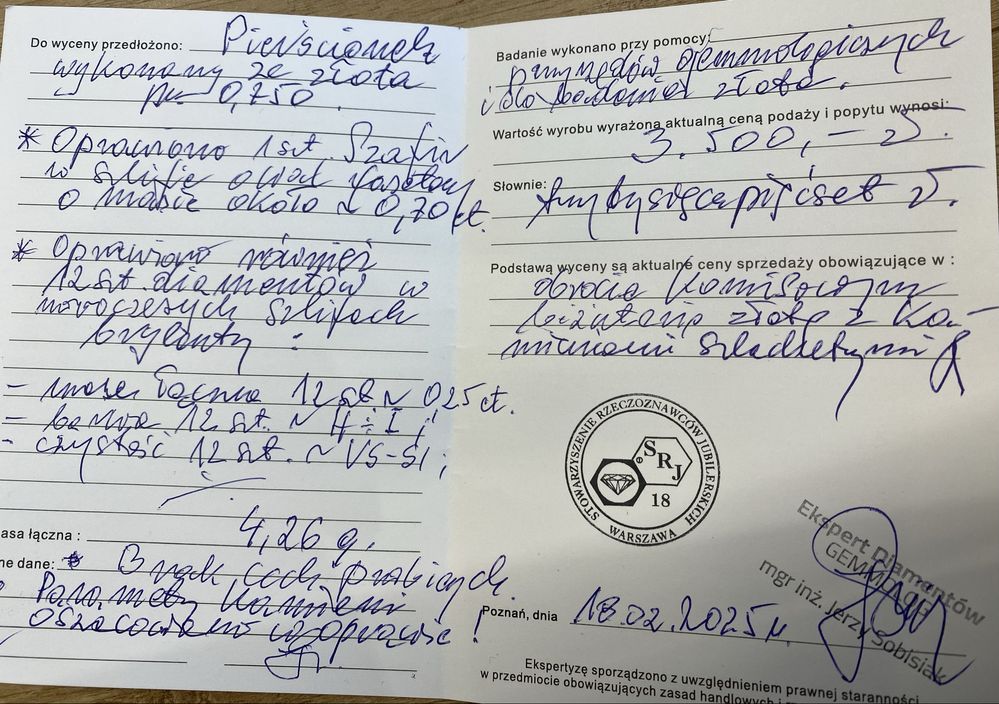 Do wyceny przedłożono: Pierścionek
wykonany ze złota
pr 0,750.
* Oprawiono 1 szt. Szafir
w szlifie owal fasetowy
o masie około ~ 0,70 ct.
* Oprawiono również
12 szt. diamentów w
nowoczesnych szlifach
brylanty :
- masa łączna 12 szt ~ 0,25 ct.
- barwa 12 szt. ~ H÷I ;
- czystość 12 szt. ~ VS-SI ;
asa łączna : 4,26 g.
ne dane: * Brak cech probierczych.
Parametry kamieni
oszacowano w oprawie !
Badanie wykonano przy pomocy:
przyrządów gemmologicznych
i do badania złota.
Wartość wyrobu wyrażona aktualną ceną podaży i popytu wynosi:
3.500,- zł.
Słownie: trzytysiącepięćset zł.
Podstawą wyceny są aktualne ceny sprzedaży obowiązujące w :
obrocie komisowym
biżuterią złotą z ka-
mieniami szlachetnymi
STOWARZYSZENIE RZECZOZNAWCÓW JUBILERSKICH
WARSZAWA
SRJ
18
Ekspert Diamentów
mgr inż. Jerzy Sobisiak
Poznań, dnia 18.02.2025 r.
Ekspertyzę sporządzono z uwzględnieniem prawnej staranności
w przedmiocie obowiązujących zasad handlowych i